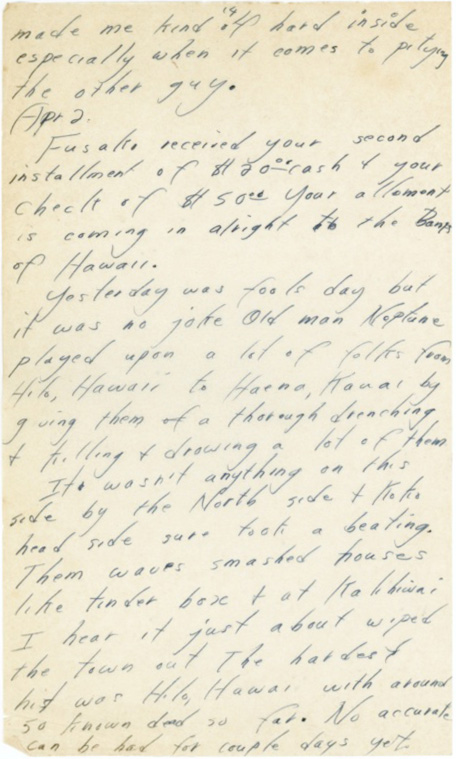 made me kind of hard inside
especially when it comes to pitying
the other guy.
Apr 2.
Fusako received your second
installment of $20.00 cash & your
check of $50.00 Your alloment
is coming in alright to the Bank
of Hawaii.
Yesterday was fools day but
it was no joke Old man Neptune
played upon a lot of folks from
Hilo, Hawaii to Haena, Kauai by
giving them of a thorough drenching
& killing & drowing a lot of them
It wasn't anything on this
side by the North side & Koko
head side sure took a beating.
Them waves smashed houses
like tinder box & at Kalihiwai
I hear it just about wiped
the town out The hardest
hit was Hilo, Hawai with around
50 known dead so far. No accurate
can be had for couple days yet.